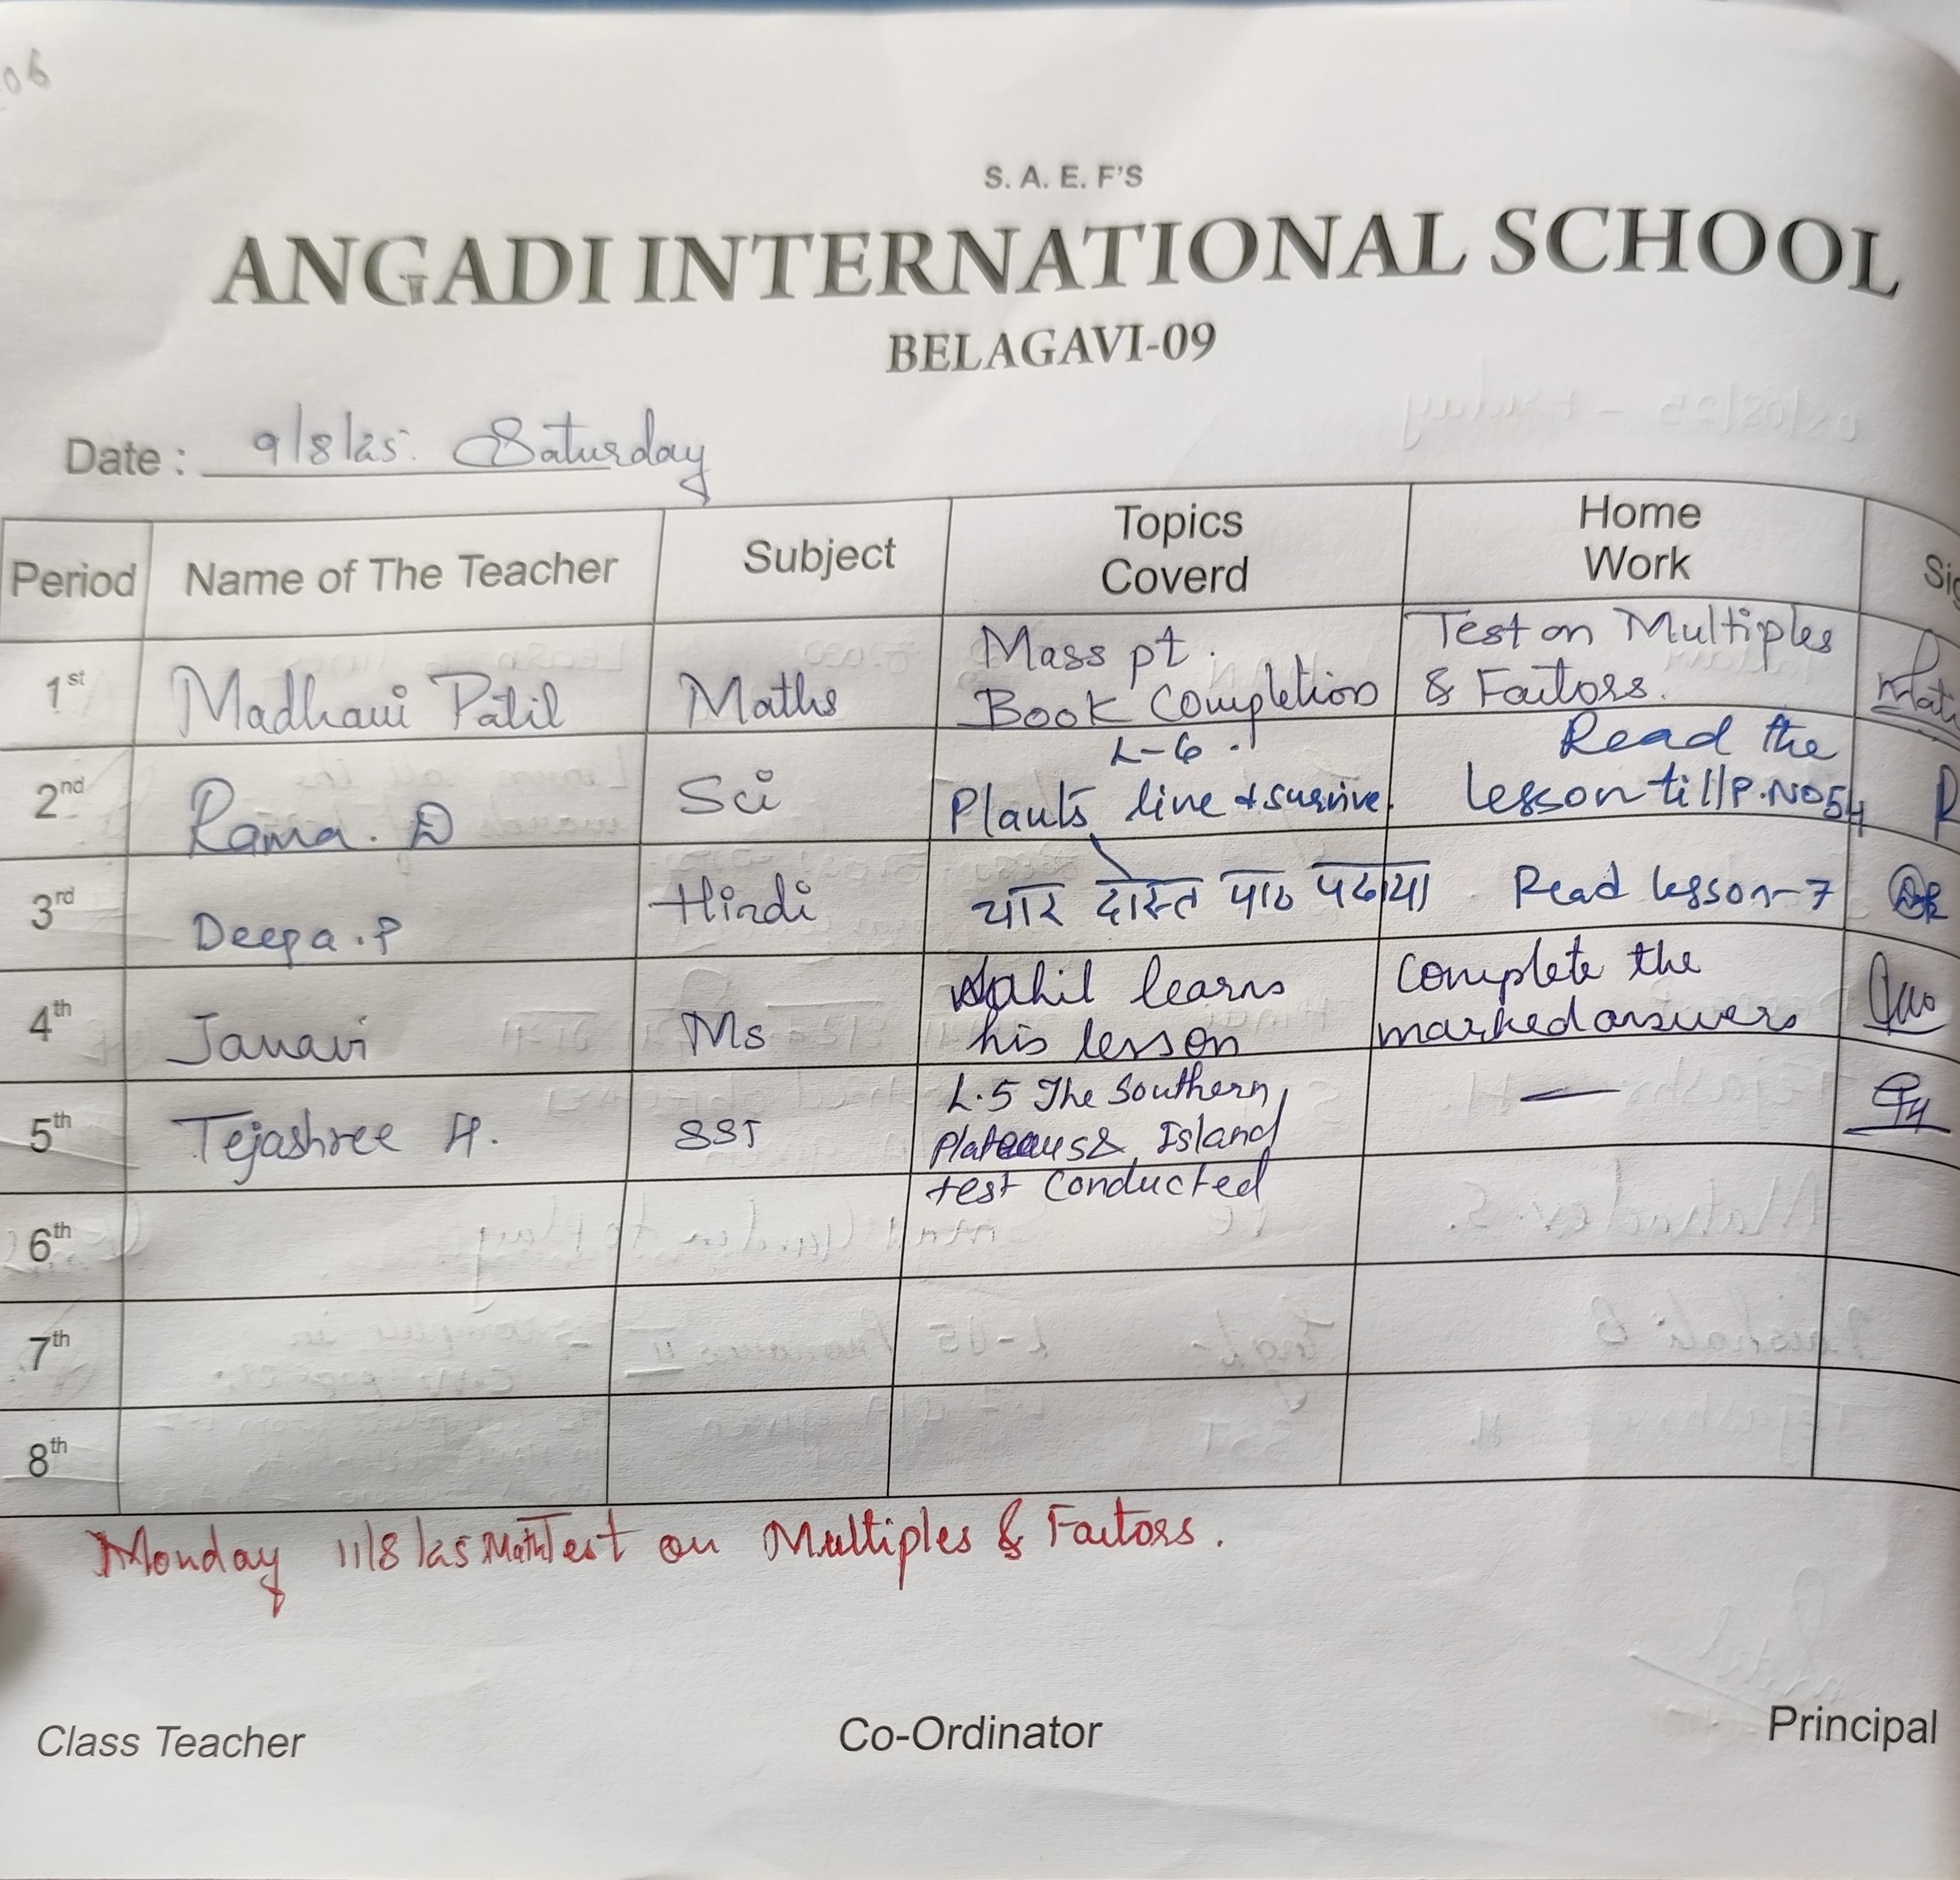 06
S. A. E. F'S
ANGADI INTERNATIONAL SCHOOL
BELAGAVI-09
Date : 9/8/25. Saturday
Period Name of The Teacher Subject Topics Coverd Home Work
1st Madhavi Patil Maths Mass pt. Book Completion Test on Multiples & Factors.
2nd Rama. D Sci L-6. Plants live & survive. Read the lesson till P.No 54
3rd Deepa.P Hindi यार दोस्त पाठ पढाया Read lesson-7
4th Janavi Ms Sahil learns his lesson Complete the marked answers
5th Tejashree H. SST L.5 The Southern Plateaus & Island test Conducted —
6th
7th
8th
Monday 11/8/25 Math Test on Multiples & Factors.
Class Teacher Co-Ordinator Principal